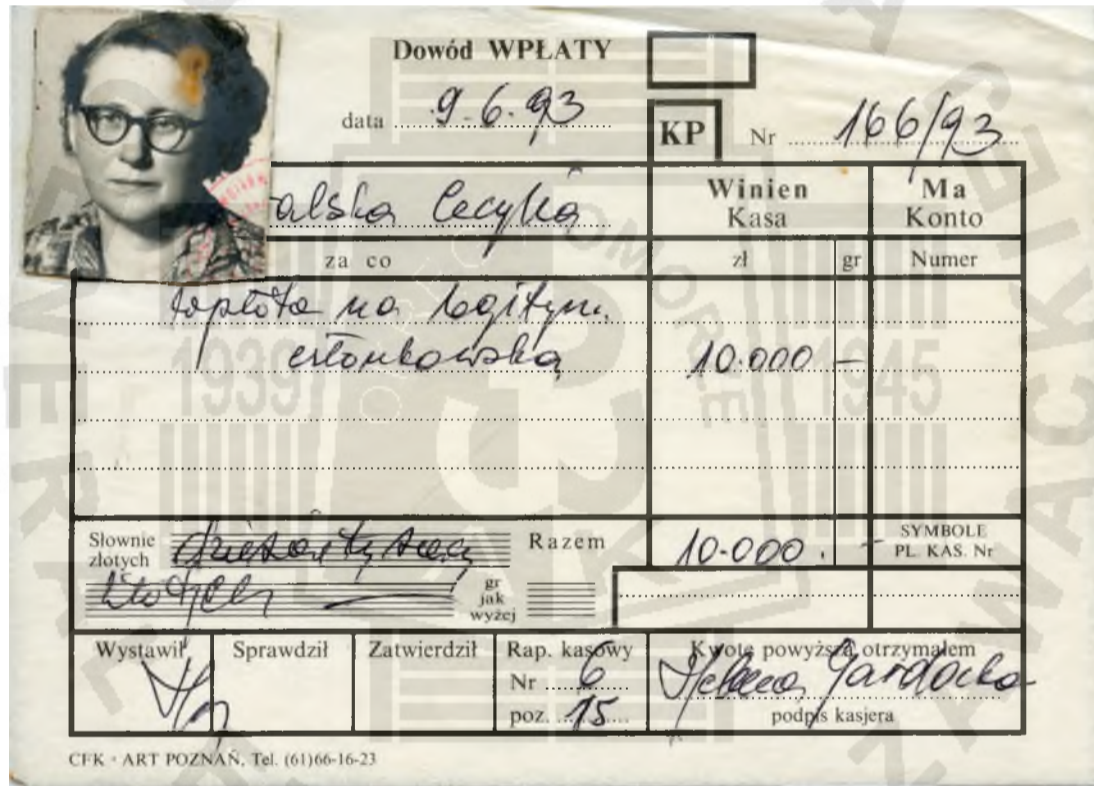 Dowód WPŁATY
data 9.6.93
KP Nr 166/93
alska Cecylia
Winien Kasa
Ma Konto
za co
zł gr Numer
wpłata na legitym.
członkowską 10.000 –
Słownie złotych dziesięć tysięcy
złotych
Razem 10.000. –
SYMBOLE PL. KAS. Nr
gr jak wyżej
Wystawił Sprawdził Zatwierdził Rap. kasowy Kwotę powyższą otrzymałem
Nr 6 Helena Gardocka
poz. 15 podpis kasjera
CFK · ART POZNAŃ, Tel. (61)66-16-23
1939 1945